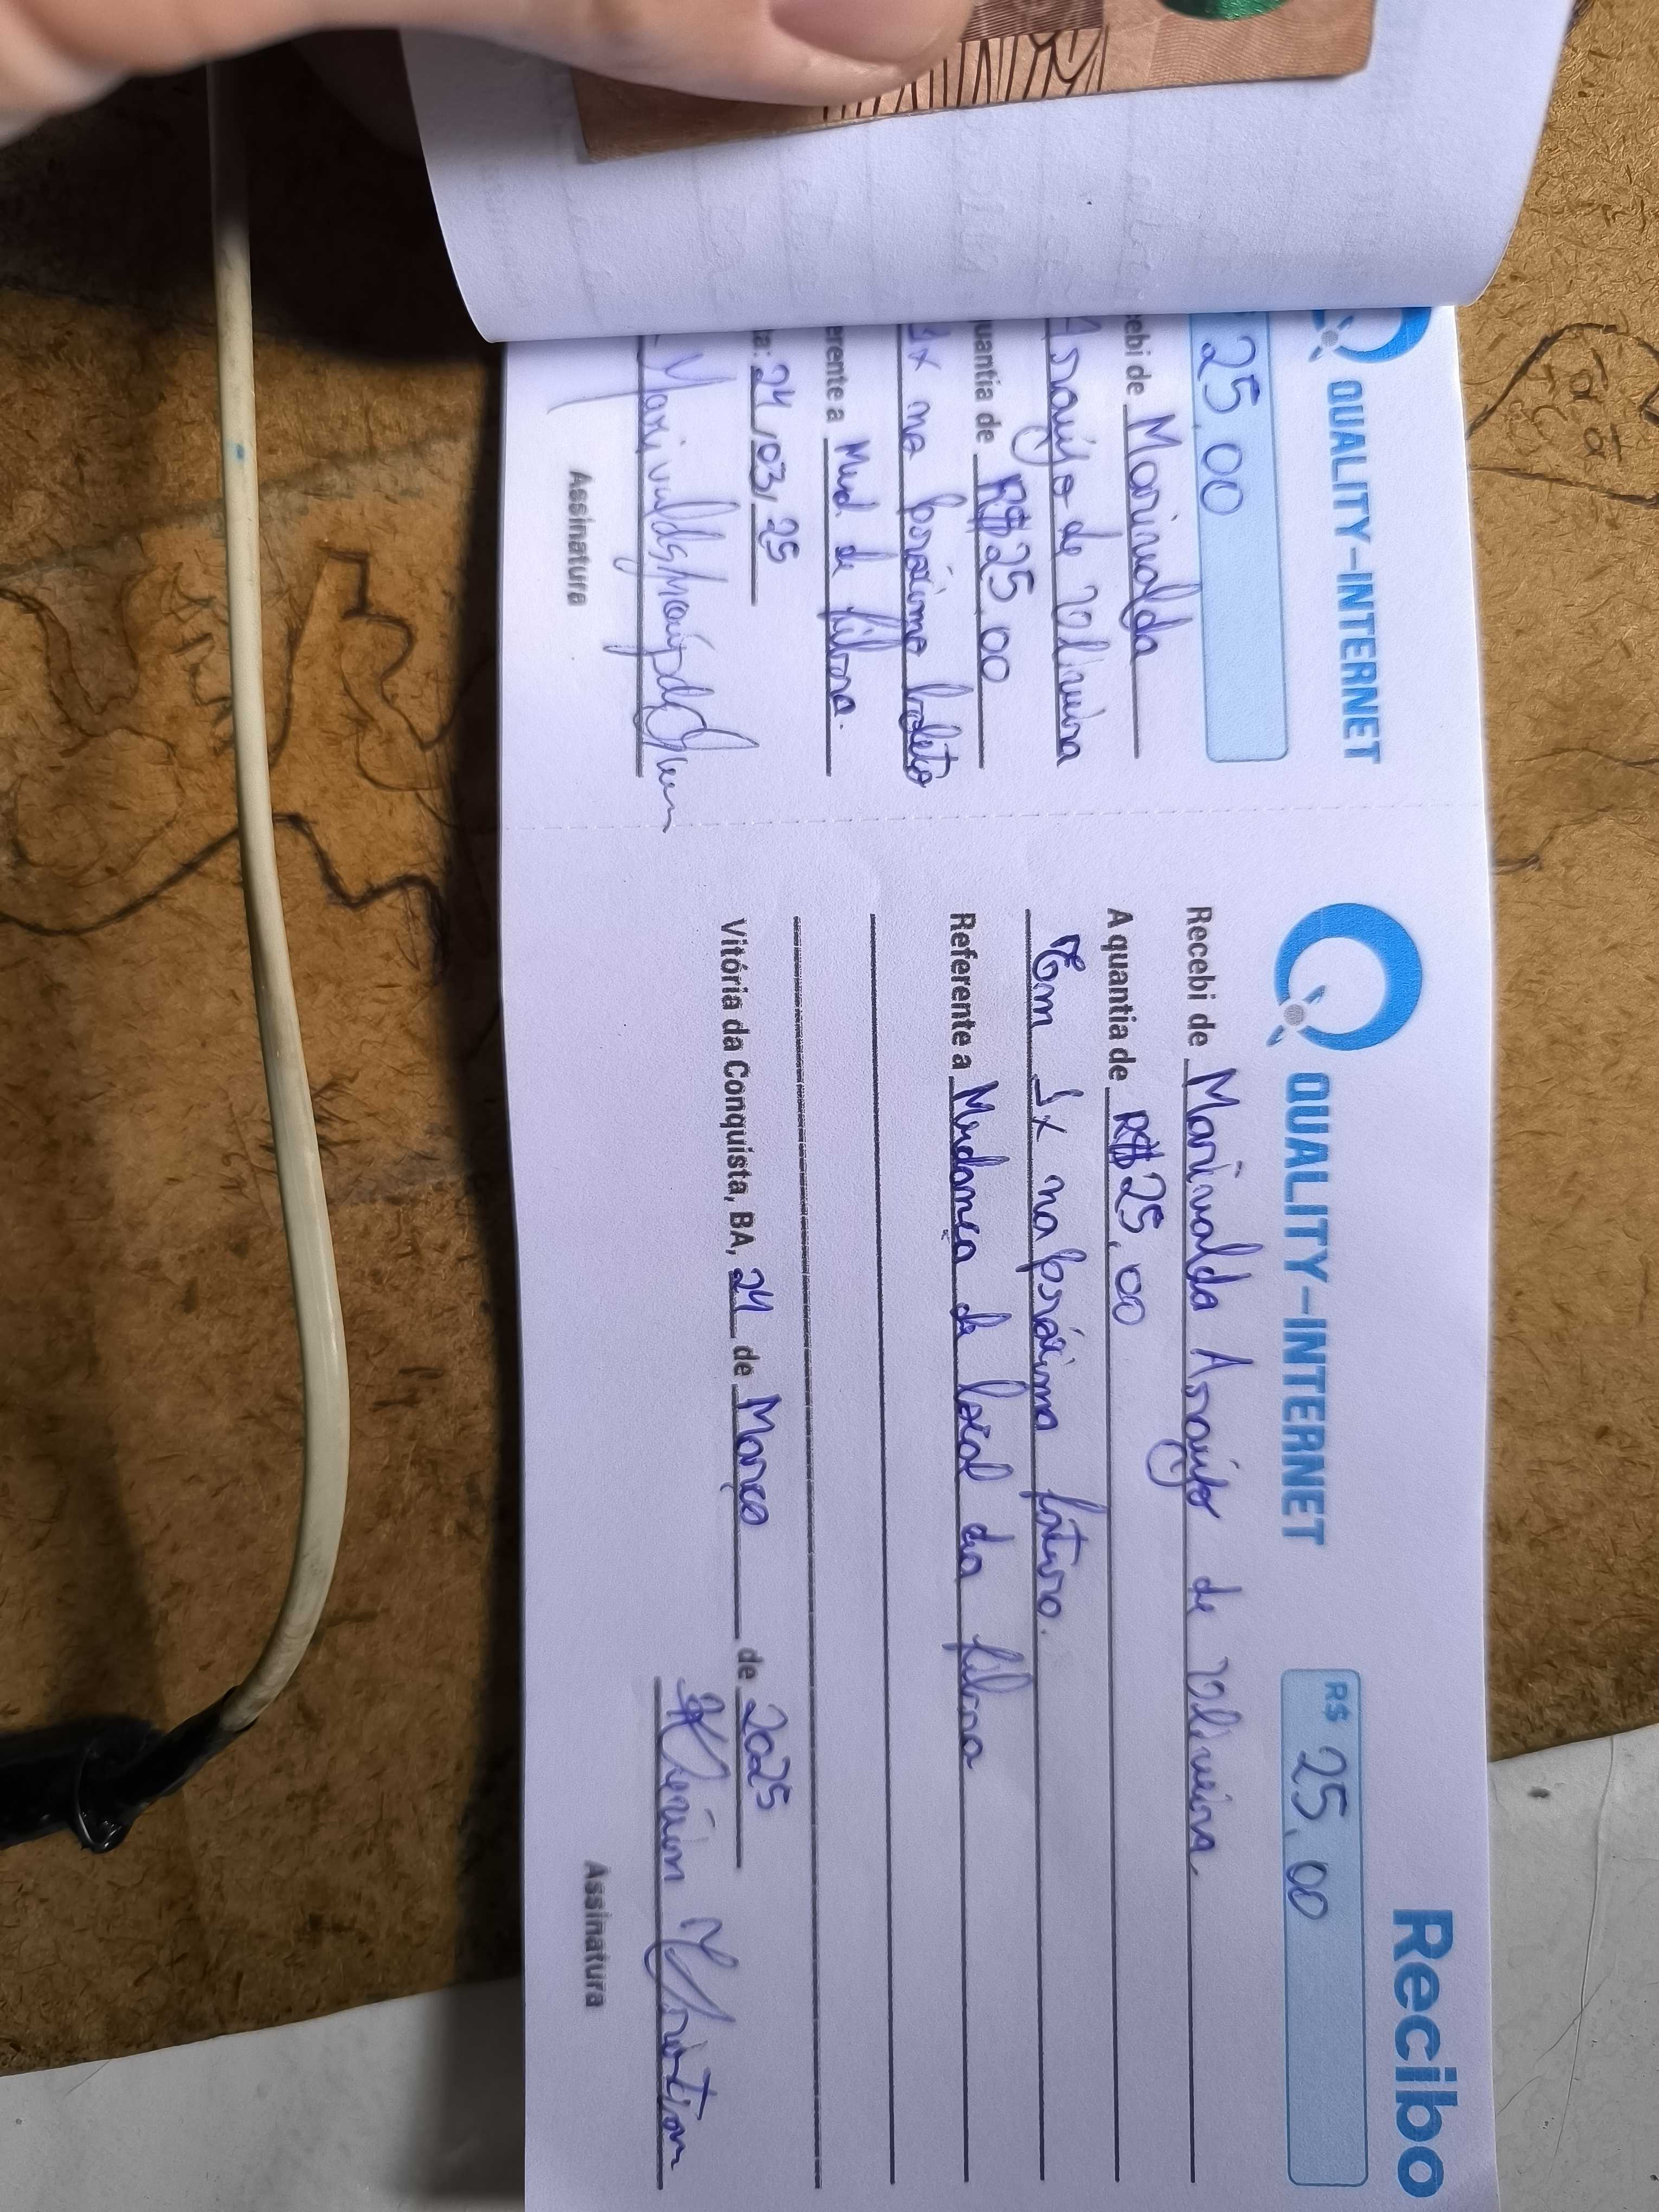 QUALITY-INTERNET
25,00
ebi de Marinalda
Araujo de Oliveira
uantia de R$25,00
1x na próximo boleto
erente a Mud de fibra.
ta: 24/03/25
Assinatura
Recibo
QUALITY-INTERNET
R$ 25,00
Recebi de Marivalda Araujo de Oliveira.
A quantia de R$25,00
Em 1x na próxima fatura.
Referente a Mudança de local da fibra
Vitória da Conquista, BA, 24 de Março de 2025
Assinatura